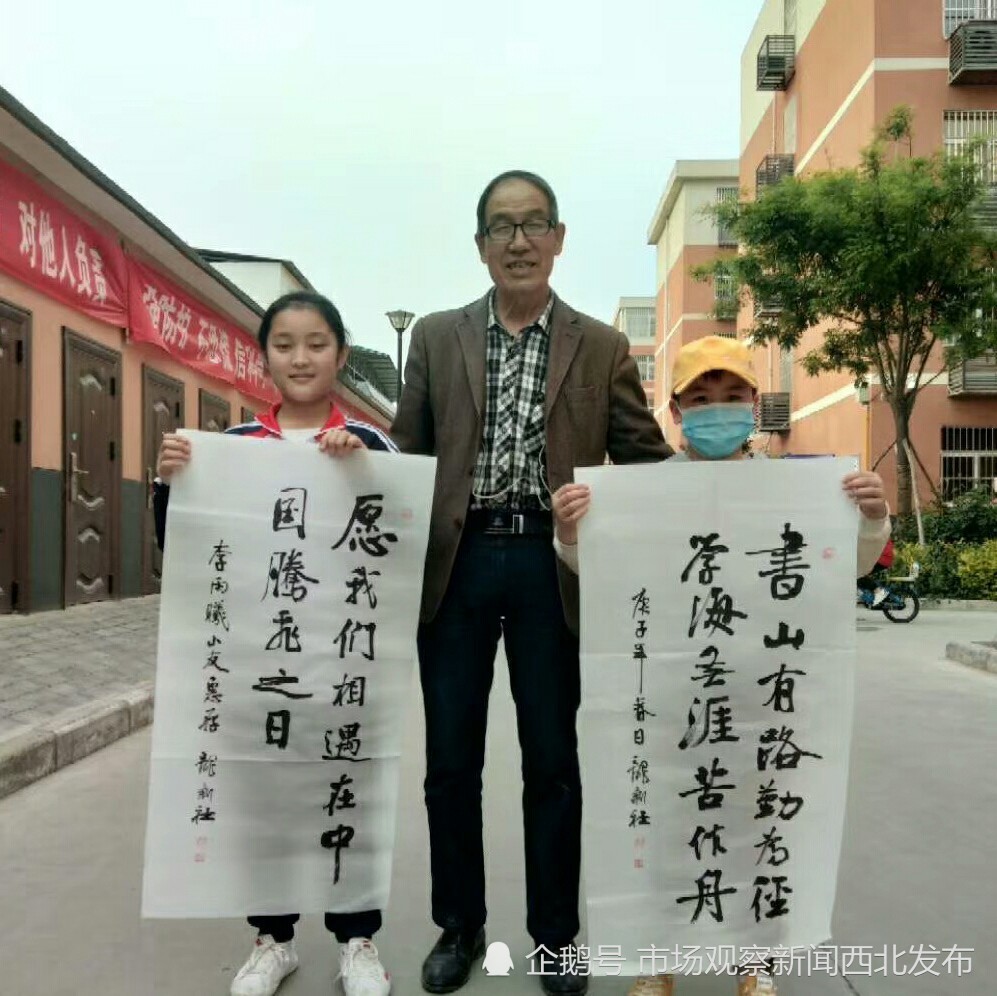 对他人负责
强防护 不恐慌 信科学
愿我们相遇在中
国腾飞之日
李雨曦小友惠存 龍新社
書山有路勤为徑
学海无涯苦作舟
庚子年春日 龍新社
企鹅号 市场观察新闻西北发布